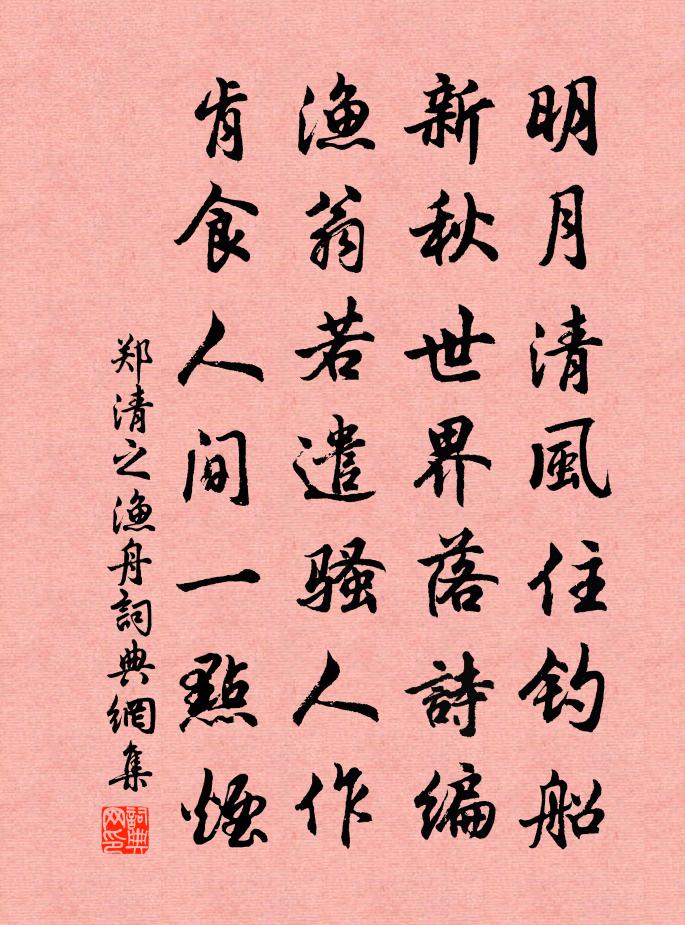 明月清風住钓船
新秋世界落詩編
漁翁若遣骚人作
肯食人间一點煙
郑清之漁舟詞典網集
詞典网印